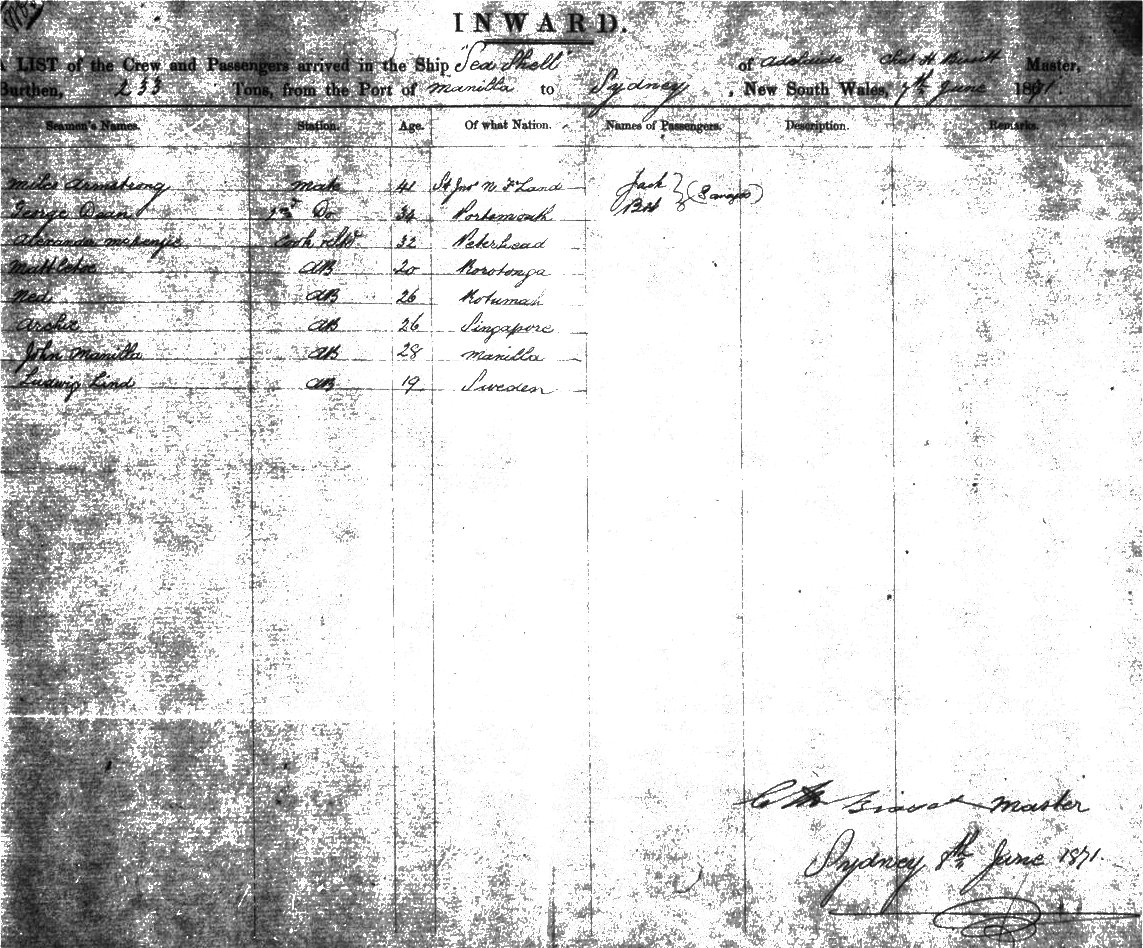 INWARD.
A LIST of the Crew and Passengers arrived in the Ship "Sea Shell" of Adelaide Chas H Master,
Burthen, 233 Tons, from the Port of Manilla to Sydney, New South Wales, 7th June 1871.
Seamen's Names. Station. Age. Of what Nation. Names of Passengers. Description. Remarks.
Miles Armstrong Mate 41 St Jno' N. F Land Jack
George 2nd Do 34 Portsmouth Bob
Alexander McKenzie Cook 32 Peterhead
AB 20 Rorotonga
Ned AB 26 Rotumah
Archie AB 26 Singapore
John Manilla AB 28 Manilla
Ludwig Lind AB 19 Sweden
Master
Sydney 8th June 1871.